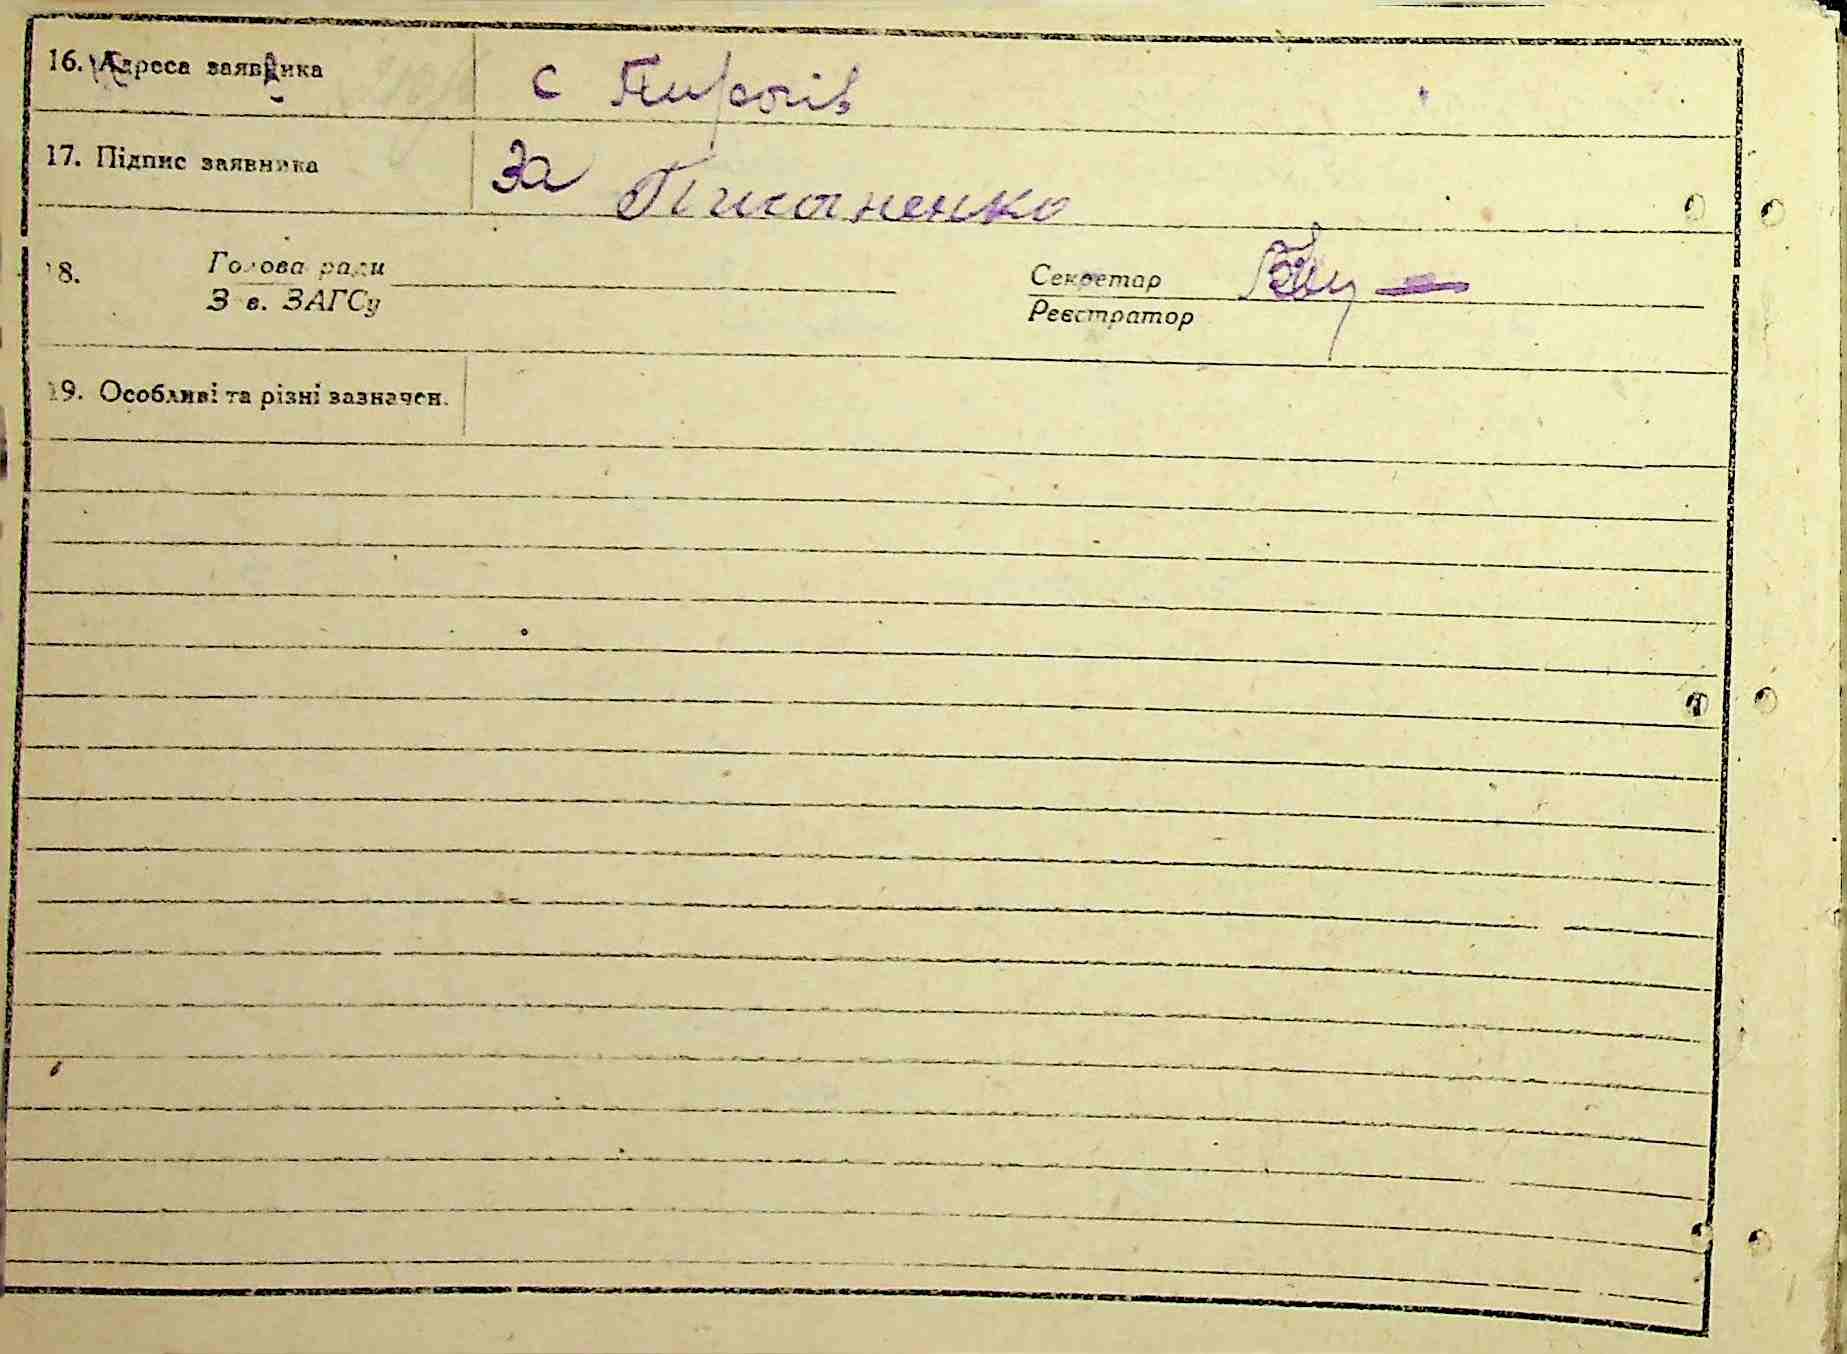 16. Адреса заявника с Пирогів
17. Підпис заявника За Писаненко
18. Голова ради Секретар
Зав. ЗАГСу Реєстратор
19. Особливі та різні зазначен.